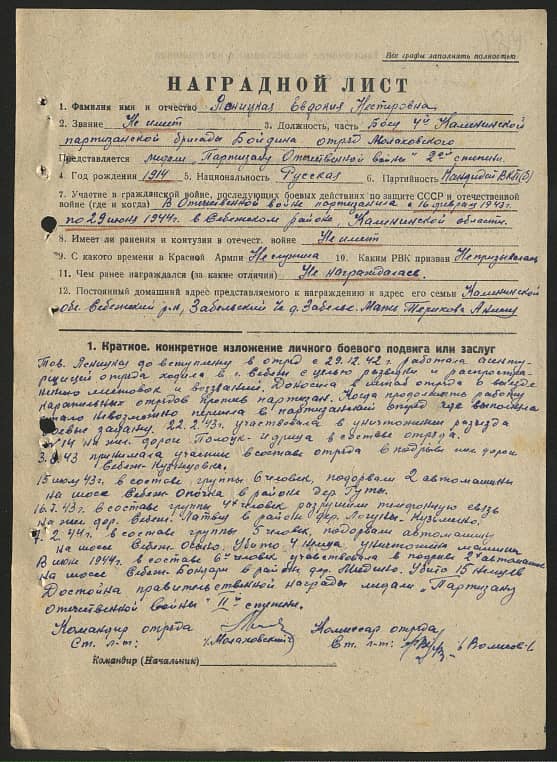 Все графы заполнять полностью
НАГРАДНОЙ ЛИСТ
1. Фамилия имя и отчество Леницкая Евдокия Нестеровна
2. Звание Не имеет 3. Должность, часть Боец 4й Калининской
партизанской бригады Бойдина отряд Молоховского
Представляется медали „Партизану Отечественной войны" 2ой степени.
4. Год рождения 1914 5. Национальность Русская 6. Партийность Кандидат ВКП(б)
7. Участие в гражданской войне, последующих боевых действиях по защите СССР и отечественной
войне (где и когда) В Отечественной войне партизанила с 16 февраля 1943г.
по 29 июня 1944г. в Себежском районе, Калининской области.
8. Имеет ли ранения и контузии в отечест. войне Не имеет
9. С какого времени в Красной Армии Не служила 10. Каким РВК призван Не призывалась
11. Чем ранее награждался (за какие отличия) Не награждалась.
12. Постоянный домашний адрес представляемого к награждению и адрес его семьи Калининской
обл. Себежский р-н, Забельский с/с д. Забелье. Мать Терихова
1. Краткое. конкретное изложение личного боевого подвига или заслуг
Тов. Леницкая до вступления в отряд с 29.12.42г. работала агенту-
рщицей отряда ходила в г. Себеж с целью разведки и распростра-
нению листовок и воззваний. Доносила в штаб отряда о выезде
карательных отрядов против партизан. Когда продолжать работу
стало невозможно перешла в партизанский отряд где выполняла
боевые задания. 22.2.43г. участвовала в уничтожении разъезда
№14 на жел. дороги Полоцк-Идрица в составе отряда.
3. 43 принимала участие в составе отряда в подрыве жел дороги
Себеж-Кузнецовка.
15 июля 43г. в составе группы 6 человек, подорвали 2 автомашины
на шоссе Себеж Опочка в районе дер Гуты.
16.7.43г. в составе группы 4х человек разрушили телефонную связь
на жел дор. Себеж. Латвия в районе дер. Кузьмино.
7.2.44г. в составе группы человек, подорвали автомашину
на шоссе Себеж Осыно. Убито 4 немца, уничтожена машина
В июне 1944г. в составе 6ти человек участвовала в подрыве 2 автомашин
на шоссе Себеж Бондари в районе дер. Мидино. Убито 15 немцев
Достойна правительственной награды медали „Партизану
отечественной войны" IIой степени.
Командир отряда Комиссар отряда
Ст. л-т: /Молоховский/ Ст. л-т:
Командир (Начальник)